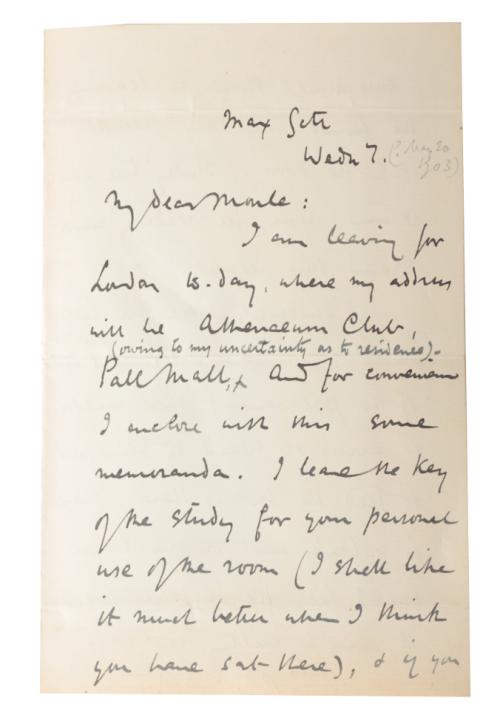 Max Gate
Wedy. (? May 20
1903)
My dear Moule:
I am leaving for
London to-day, where my address
will be Athenaeum Club,
(owing to my uncertainty as to residence)-
Pall Mall,x and for convenience
I enclose with this some
memoranda. I leave the key
of the study for your personal
use of the room (I shall like
it much better when I think
you have sat there), & if you